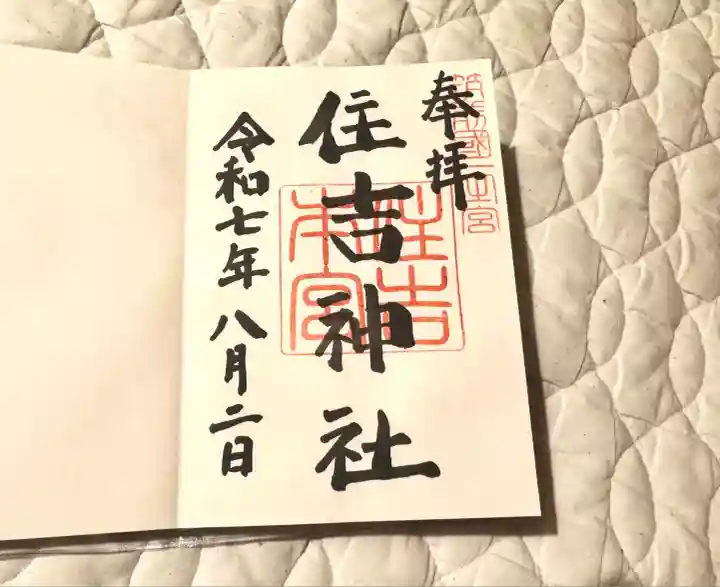 奉拝
筑前國一之宮
住吉神社
住吉本宮
令和七年八月二日